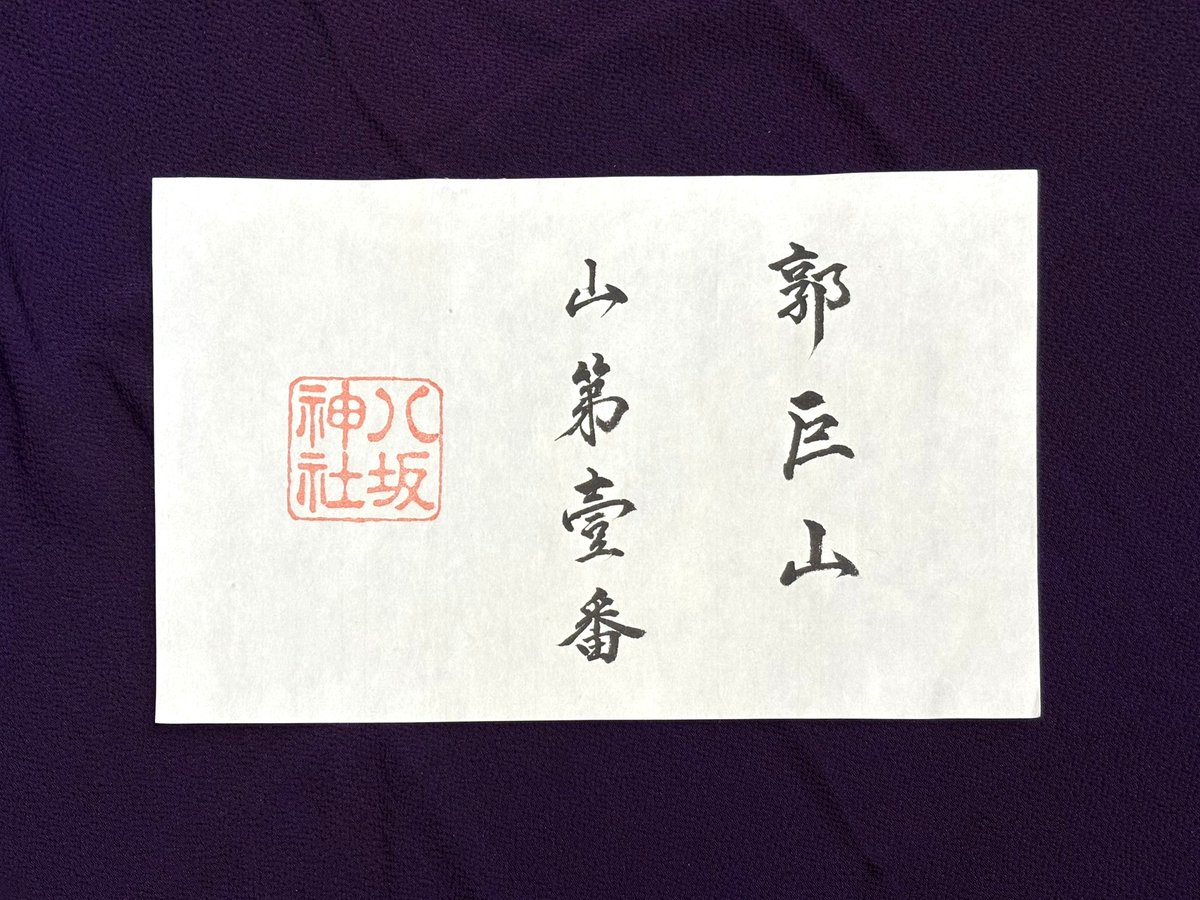 郭巨山
山第壹番
八坂
神社